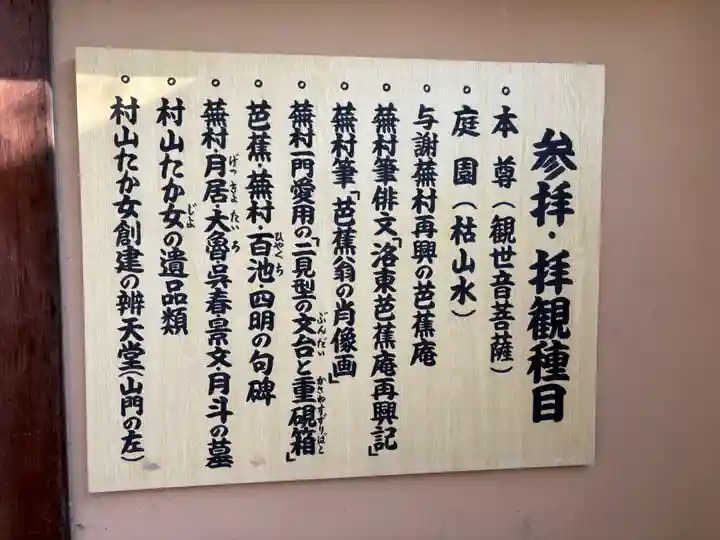 参拝・拝観種目
。本尊（観世音菩薩）
。庭園（枯山水）
。与謝蕪村再興の芭蕉庵
。蕪村筆俳文「洛東芭蕉庵再興記」
。蕪村筆「芭蕉翁の肖像画」
。蕪村一門愛用の「二見型の文台と重硯箱」
ぶんだい かさねすずりばこ
。芭蕉・蕪村・百池・四明の句碑
ひゃくち
。蕪村・月居・大魯呉春景文・月斗の墓
げっきょ たいろ
。村山たか女の遺品類
じよ
。村山たか女創建の辨天堂（山門の左）